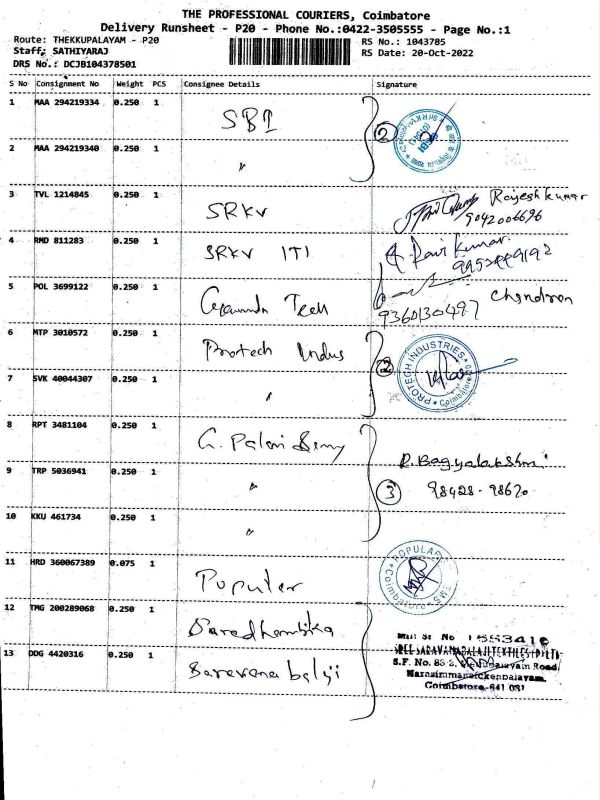 THE PROFESSIONAL COURIERS, Coimbatore
Delivery Runsheet - P20 - Phone No.:0422-3505555 - Page No.:1
Route: THEKKUPALAYAM - P20
RS No.: 1043785
Staff: SATHIYARAJ
RS Date: 20-Oct-2022
DRS No.: DCJB104378501
S No Consignment No Weight PCS Consignee Details Signature
1 MAA 294219334 0.250 1 SBI
2
2 MAA 294219340 0.250 1 "
3 TVL 1214845 0.250 1 SRKV Rajeshkumar
9042006696
4 RMD 811283 0.250 1 SRKV ITI Ravi Kumar
5 POL 3699122 0.250 1 Tech Chandran
9360130497
6 MTP 3010572 0.250 1 Protech Indus
2 PROTECH INDUSTRIES Coimbatore
7 SVK 40044307 0.250 1 "
8 RPT 3481104 0.250 1 G. Palani
R. Bagyalakshmi
9 TRP 5036941 0.250 1 "
3 98428-98620
10 KKU 461734 0.250 1 "
11 HRD 360067389 0.075 1 Populer POPULAR Coimbatore
12 TMG 200289068 0.250 1
No 1553410
13 DDG 4420316 0.250 1 Saravana balaji
S.F. No. Road
Narasimmanaickenpalayam,
Coimbatore-641 031